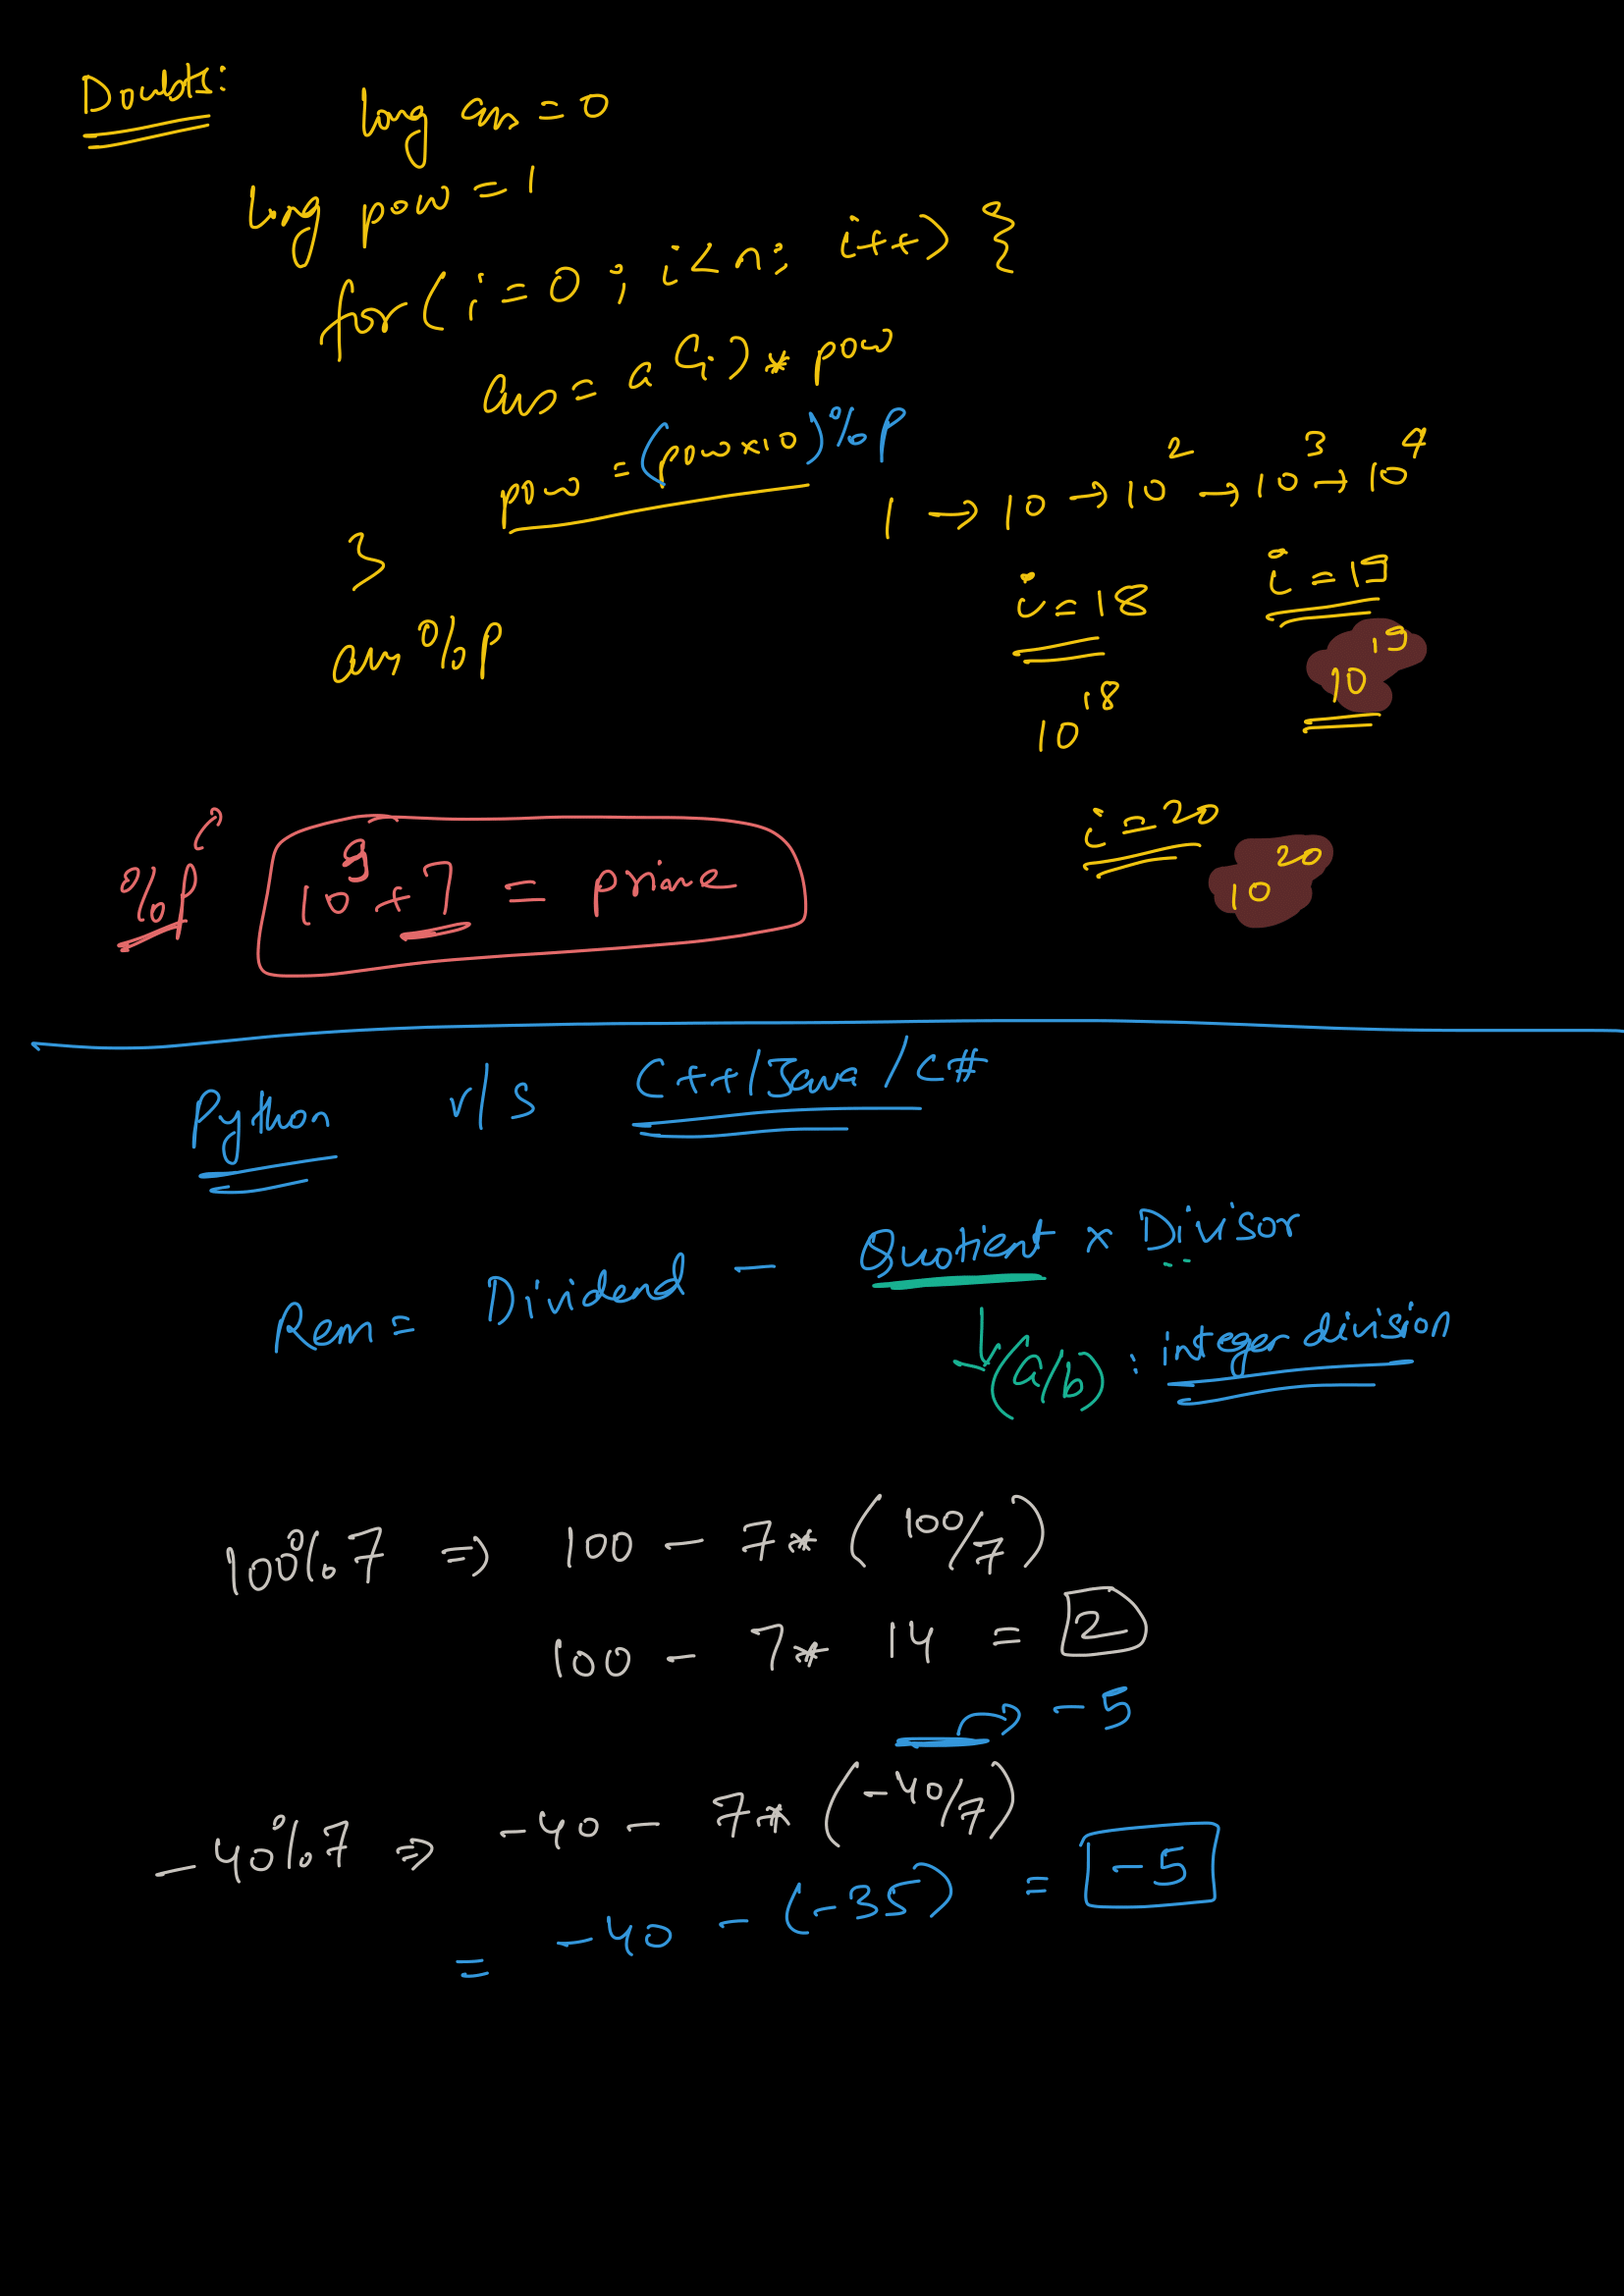 Doubts:
long ans = 0
long pow = 1
for ( i = 0 ; i < n ; i++ ) {
ans = a(i) * pow
pow = (pow×10)%p
1 → 10 → 10² → 10³ → 10⁴
}
i = 18
i = 19
ans % p
10¹⁸
10¹⁹
i = 20
10²⁰
%p
10⁹ + 7 = prime
Python v/s C++/Java/C#
Rem = Dividend − Quotient × Divisor
(a/b) : integer division
100%7 ⇒ 100 − 7* (100/7)
100 − 7* 14 = 2
−5
−40%7 ⇒ −40 − 7* (−40/7)
= −40 − (−35) = −5